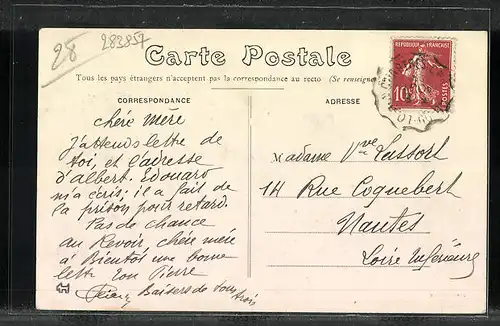 28 283857
Carte Postale
Tous les pays étrangers n'acceptent pas la correspondance au recto (Se renseigner
REPUBLIQUE FRANÇAISE
10
POSTES
CORRESPONDANCE
ADRESSE
chère mère
J'attends lettre de
toi, et l'adresse
d'albert. Edouard
m'a écris; il a fait de
la prison pour retard.
Pas de chance
au Revoir, chère mère
à Bientôt une bonne
lettre ton Pierre
Baisers de tous
trois
Madame Vve Lassort
14 Rue Coquebert
Nantes
Loire Inférieure